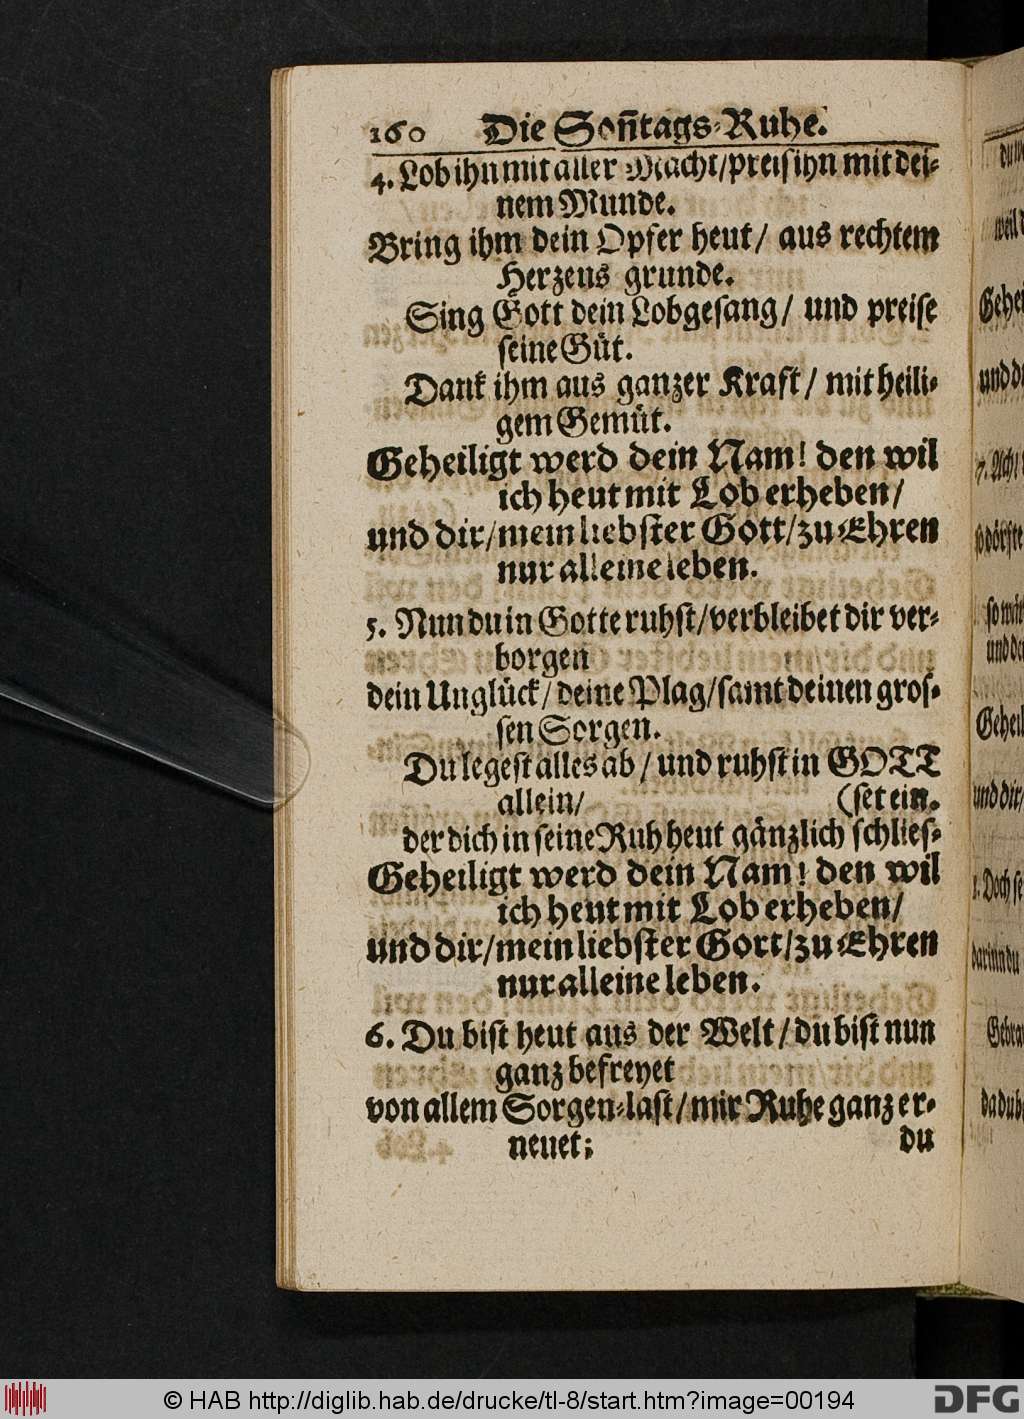 160 Die Soñtags-Ruhe.
4. Lob ihn mit aller Macht/preis ihn mit dei-
nem Munde.
Bring ihm dein Opfer heut/ aus rechtem
Herzens grunde.
Sing Gott dein Lobgesang/ und preise
seine Güt.
Dank ihm aus ganzer Kraft/ mit heili-
gem Gemüt.
Geheiligt werd dein Nam! den wil
ich heut mit Lob erheben/
und dir/mein liebster Gott/zu Ehren
nur alleine leben.
5. Nun du in Gotte ruhst/verbleibet dir ver-
borgen
dein Unglück/deine Plag/samt deinen gros-
sen Sorgen.
Du legest alles ab/und ruhst in GOTT
allein/ (set ein.
der dich in seine Ruh heut gänzlich schlies-
Geheiligt werd dein Nam! den wil
ich heut mit Lob erheben/
und dir/mein liebster Gott/zu Ehren
nur alleine leben.
6. Du bist heut aus der Welt/du bist nun
ganz befreyet
von allem Sorgen-last/mir Ruhe ganz er-
neuet; du
weil
Gehei
und di
7. Ach!
so dörfte
und de
Geheil
und dir/
Doch se
darinn du
Gebra
da du
© HAB http://diglib.hab.de/drucke/tl-8/start.htm?image=00194
DFG